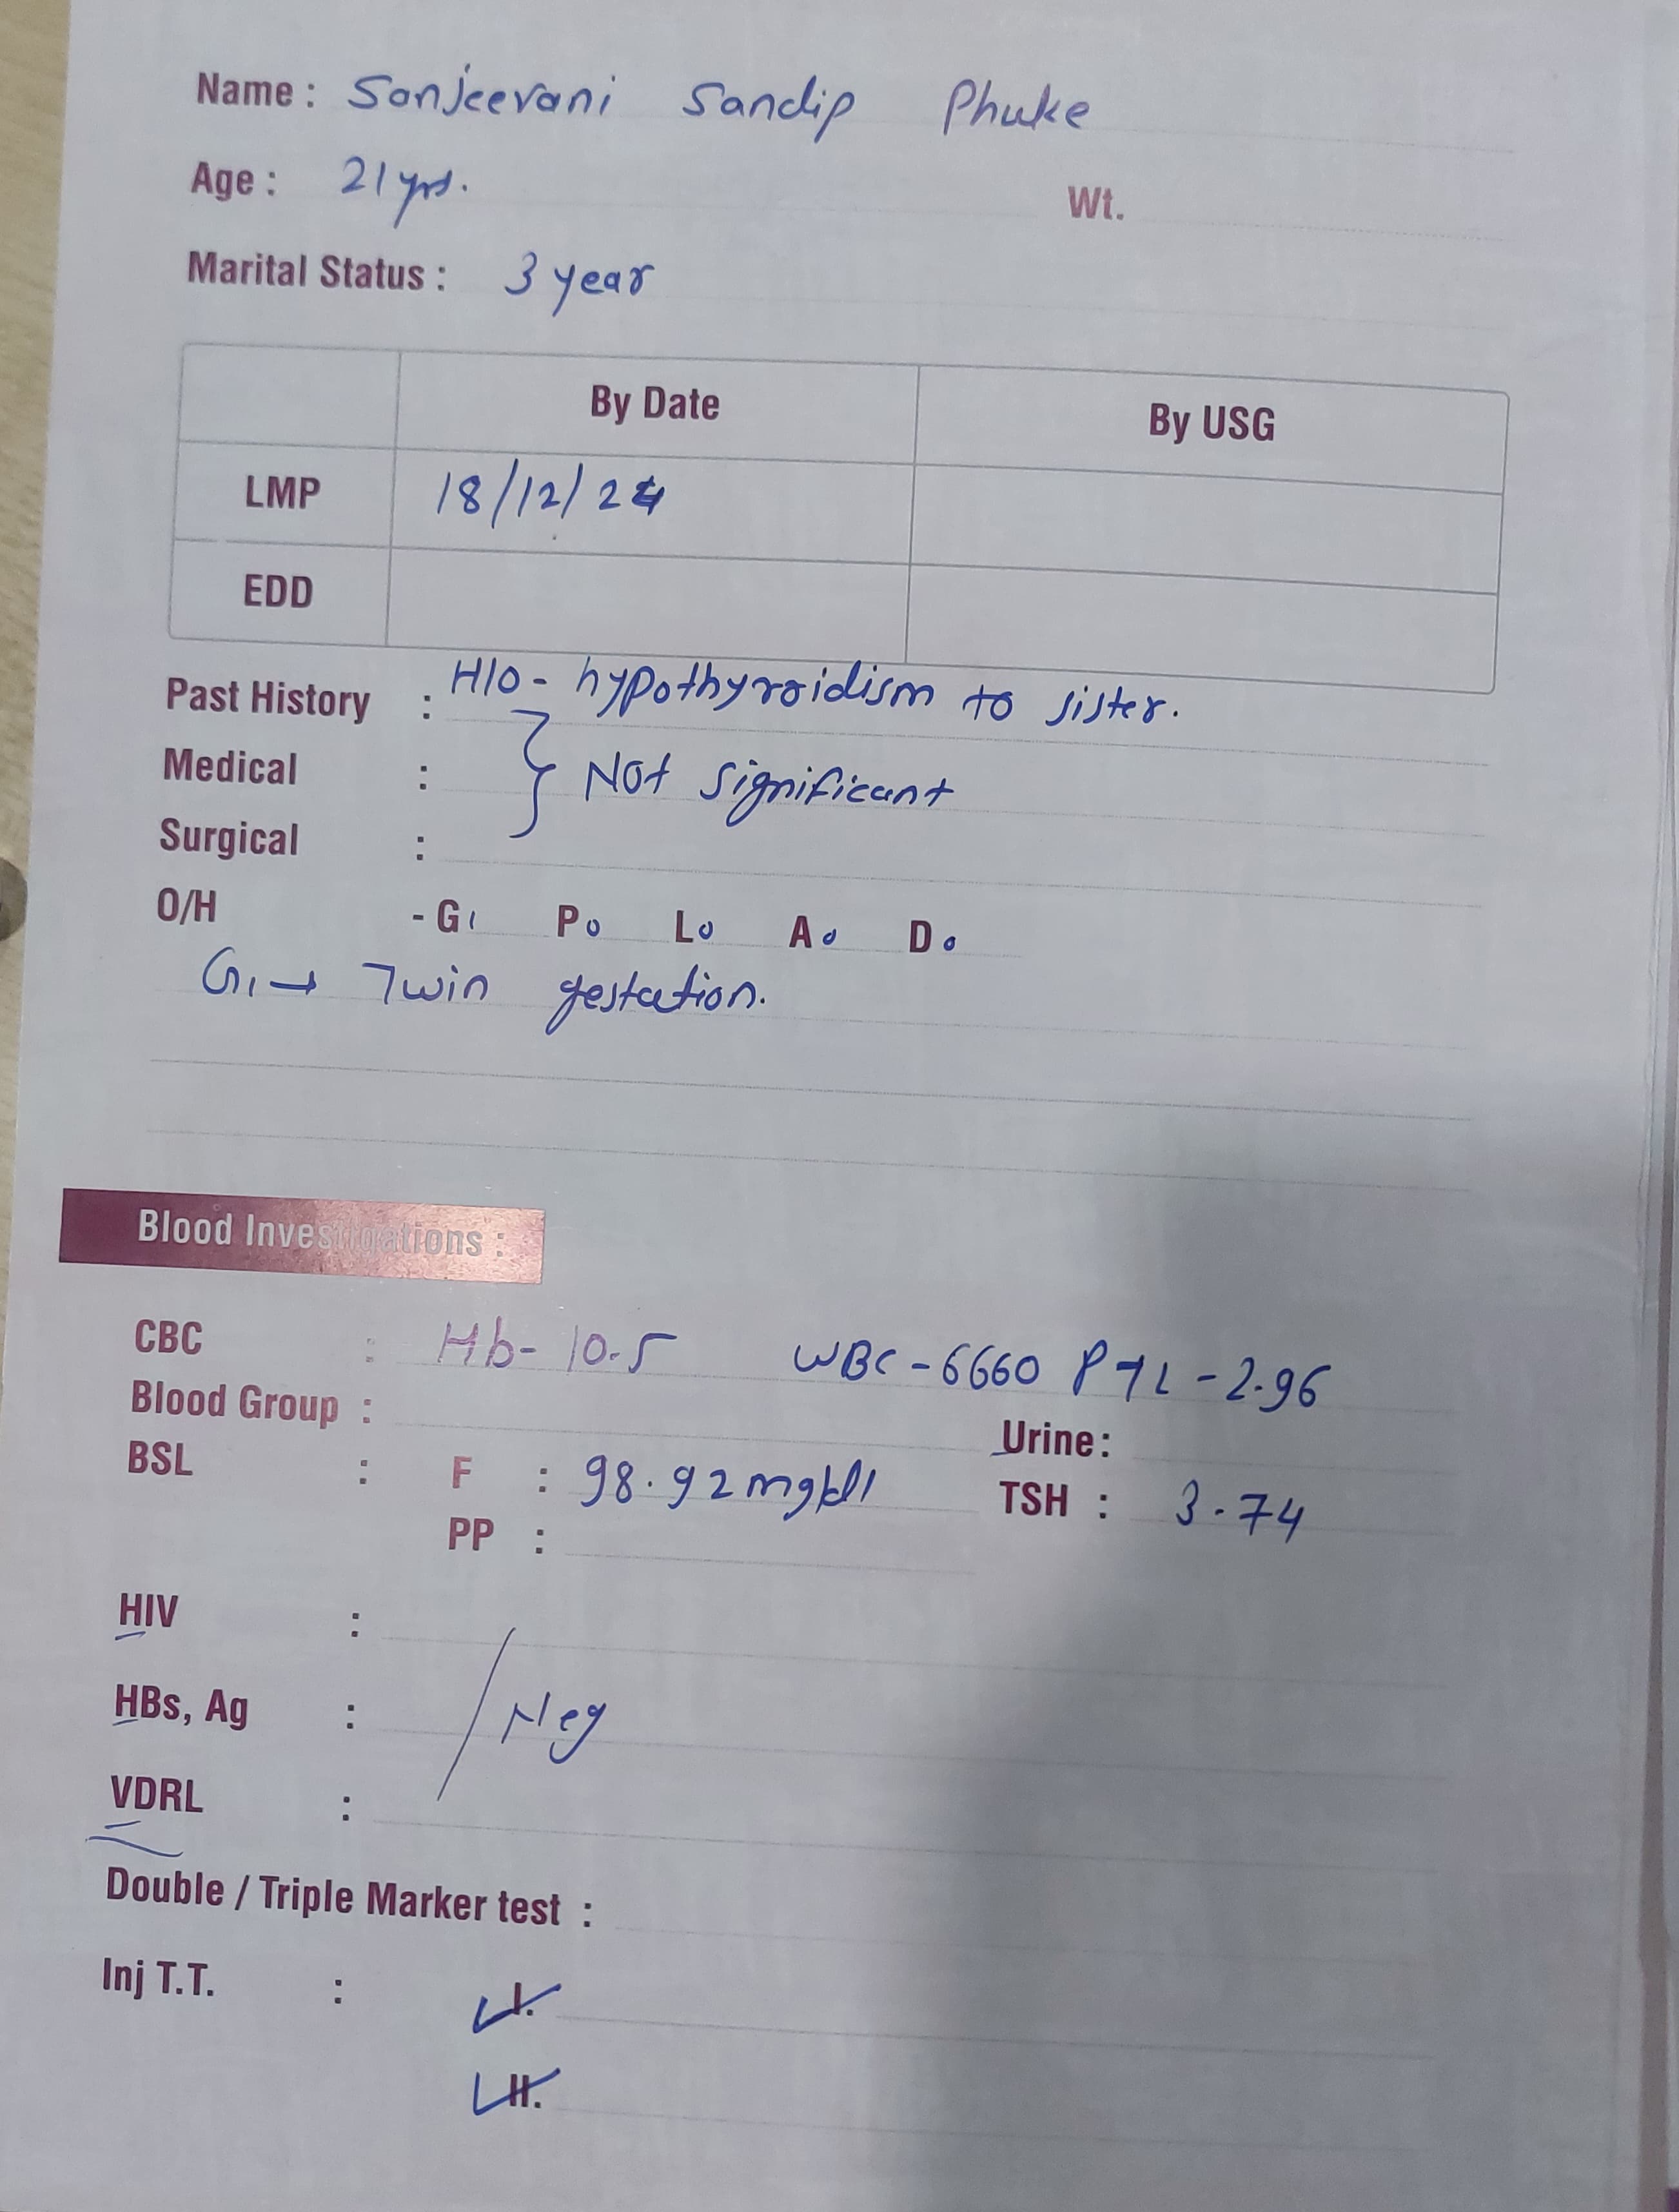 Name : Sanjeevani Sandip Phuke
Age : 21 yrs. Wt.
Marital Status : 3 year
By Date By USG
LMP 18/12/24
EDD
Past History : H/O - hypothyroidism to sister.
Medical :
} Not significant
Surgical :
O/H - G1 P0 L0 A0 D0
G1 → Twin gestation.
Blood Investigations :
CBC : Hb - 10.5 WBC - 6660 PTL - 2.96
Blood Group : Urine :
BSL : F : 98.92 mg/dl TSH : 3.74
PP :
HIV :
HBs, Ag : / Neg
VDRL :
Double / Triple Marker test :
Inj T.T. : ✓ I.
✓ II.